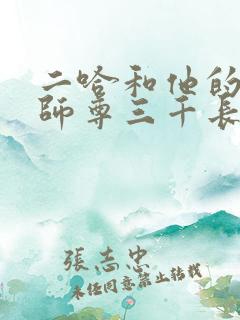 二哈和他的
師尊三千長
張志忠
未经同意禁止转载